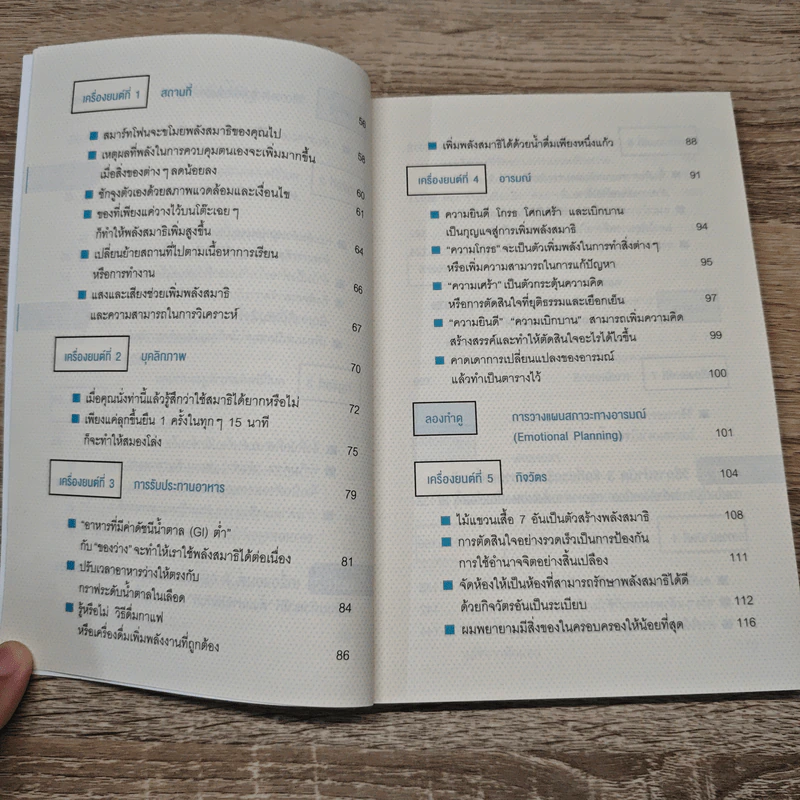 เครื่องยนต์ที่ 1 สถานที่ 56
สมาร์ทโฟนจะขโมยพลังสมาธิของคุณไป 58
เหตุผลที่พลังในการควบคุมตนเองจะเพิ่มมากขึ้น
เมื่อสิ่งของต่างๆ ลดน้อยลง 60
ชักจูงตัวเองด้วยสภาพแวดล้อมและเงื่อนไข 61
ของที่เพียงแค่วางไว้บนโต๊ะเฉยๆ
ก็ทำให้พลังสมาธิเพิ่มสูงขึ้น 64
เปลี่ยนย้ายสถานที่ไปตามเนื้อหาการเรียน
หรือการทำงาน 66
แสงและเสียงช่วยเพิ่มพลังสมาธิ
และความสามารถในการวิเคราะห์ 67
เครื่องยนต์ที่ 2 บุคลิกภาพ 70
เมื่อคุณนั่งท่านี้แล้วรู้สึกว่าใช้สมาธิได้ยากหรือไม่ 72
เพียงแค่ลุกขึ้นยืน 1 ครั้งในทุกๆ 15 นาที
ก็จะทำให้สมองโล่ง 75
เครื่องยนต์ที่ 3 การรับประทานอาหาร 79
"อาหารที่มีค่าดัชนีน้ำตาล (GI) ต่ำ"
กับ "ของว่าง" จะทำให้เราใช้พลังสมาธิได้ต่อเนื่อง 81
ปรับเวลาอาหารว่างให้ตรงกับ
กราฟระดับน้ำตาลในเลือด 84
รู้หรือไม่ วิธีดื่มกาแฟ
หรือเครื่องดื่มเพิ่มพลังงานที่ถูกต้อง 86
เพิ่มพลังสมาธิได้ด้วยน้ำดื่มเพียงหนึ่งแก้ว 88
เครื่องยนต์ที่ 4 อารมณ์ 91
ความยินดี โกรธ โศกเศร้า และเบิกบาน
เป็นกุญแจสู่การเพิ่มพลังสมาธิ 94
"ความโกรธ" จะเป็นตัวเพิ่มพลังในการทำสิ่งต่างๆ
หรือเพิ่มความสามารถในการแก้ปัญหา 95
"ความเศร้า" เป็นตัวกระตุ้นความคิด
หรือการตัดสินใจที่ยุติธรรมและเยือกเย็น 97
"ความยินดี" "ความเบิกบาน" สามารถเพิ่มความคิด
สร้างสรรค์และทำให้ตัดสินใจอะไรได้ไวขึ้น 99
คาดเดาการเปลี่ยนแปลงของอารมณ์
แล้วทำเป็นตารางไว้ 100
ลองทำดู การวางแผนสภาวะทางอารมณ์
(Emotional Planning) 101
เครื่องยนต์ที่ 5 กิจวัตร 104
ไม้แขวนเสื้อ 7 อันเป็นตัวสร้างพลังสมาธิ 108
การตัดสินใจอย่างรวดเร็วเป็นการป้องกัน
การใช้อำนาจจิตอย่างสิ้นเปลือง 111
จัดห้องให้เป็นห้องที่สามารถรักษาพลังสมาธิได้ดี
ด้วยกิจวัตรอันเป็นระเบียบ 112
ผมพยายามมีสิ่งของในครอบครองให้น้อยที่สุด 116